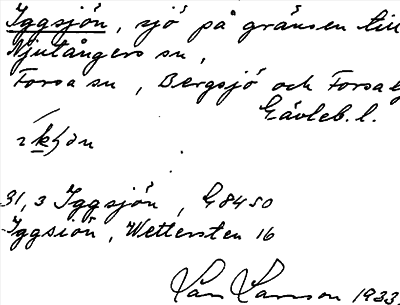 Iggsjön, sjö på gränsen till
Njutångers sn,
Forsa sn, Bergsjö och Forsa
Gävleb. l.
31, 3 Iggsjön, G8450
Iggsiön, Wettersten 16
Lars Larsson 1933